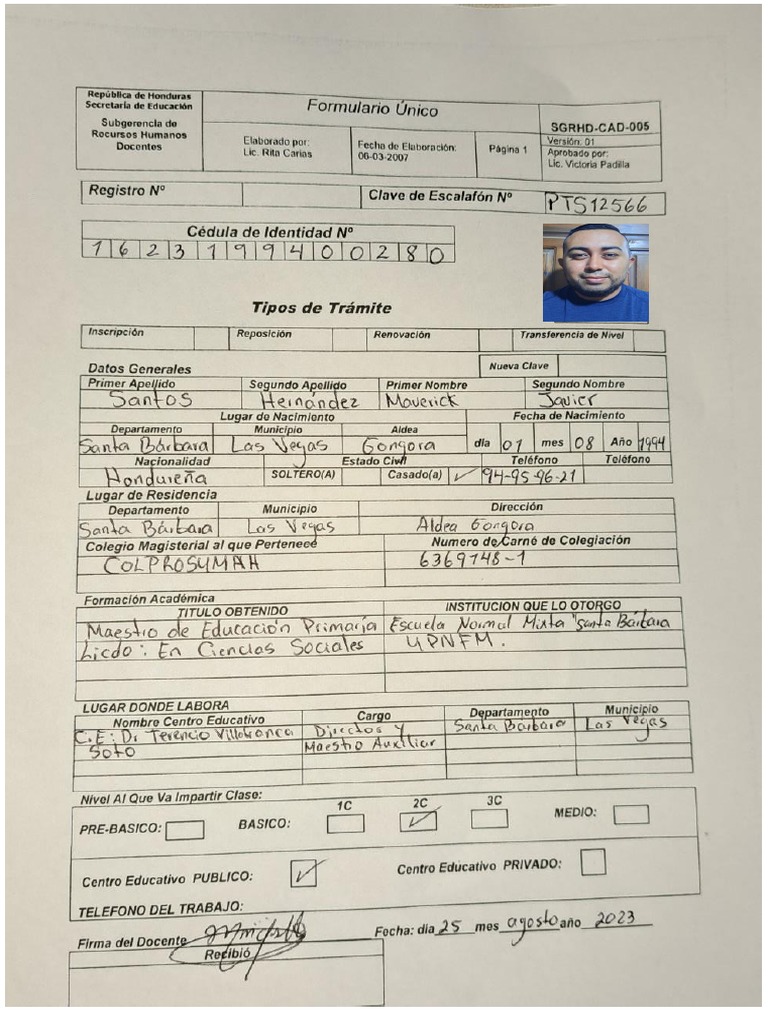 República de Honduras
Secretaría de Educación
Subgerencia de
Recursos Humanos
Docentes
Formulario Único
Elaborado por:
Lic. Rita Carias
Fecha de Elaboración:
06-03-2007
Página 1
SGRHD-CAD-005
Versión: 01
Aprobado por:
Lic. Victoria Padilla
Registro Nº
Clave de Escalafón Nº PTS12566
Cédula de Identidad Nº
1623199400280
Tipos de Trámite
Inscripción Reposición Renovación Transferencia de Nivel
Datos Generales Nueva Clave
Primer Apellido Segundo Apellido Primer Nombre Segundo Nombre
Santos Hernández Maverick Javier
Lugar de Nacimiento Fecha de Nacimiento
Departamento Municipio Aldea
Santa Bárbara Las Vegas Gongora día 01 mes 08 Año 1994
Nacionalidad Estado Civil Teléfono Teléfono
Hondureña SOLTERO(A) Casado(a) ✓ 94-95-96-21
Lugar de Residencia
Departamento Municipio Dirección
Santa Bárbara Las Vegas Aldea Gongora
Colegio Magisterial al que Pertenece Numero de Carné de Colegiación
COLPROSUMAH 6369748-1
Formación Académica
TITULO OBTENIDO INSTITUCION QUE LO OTORGO
Maestro de Educación Primaria Escuela Normal Mixta "Santa Bárbara
Licdo: En Ciencias Sociales UPNFM.
LUGAR DONDE LABORA
Nombre Centro Educativo Cargo Departamento Municipio
C.E: Dr Terencio Villafranca Director y Santa Bárbara Las Vegas
Soto Maestro Auxiliar
Nivel Al Que Va Impartir Clase:
1C 2C 3C
PRE-BASICO: BASICO: ✓ MEDIO:
Centro Educativo PUBLICO: ✓ Centro Educativo PRIVADO:
TELEFONO DEL TRABAJO:
Firma del Docente Fecha: día 25 mes agosto año 2023
Recibió